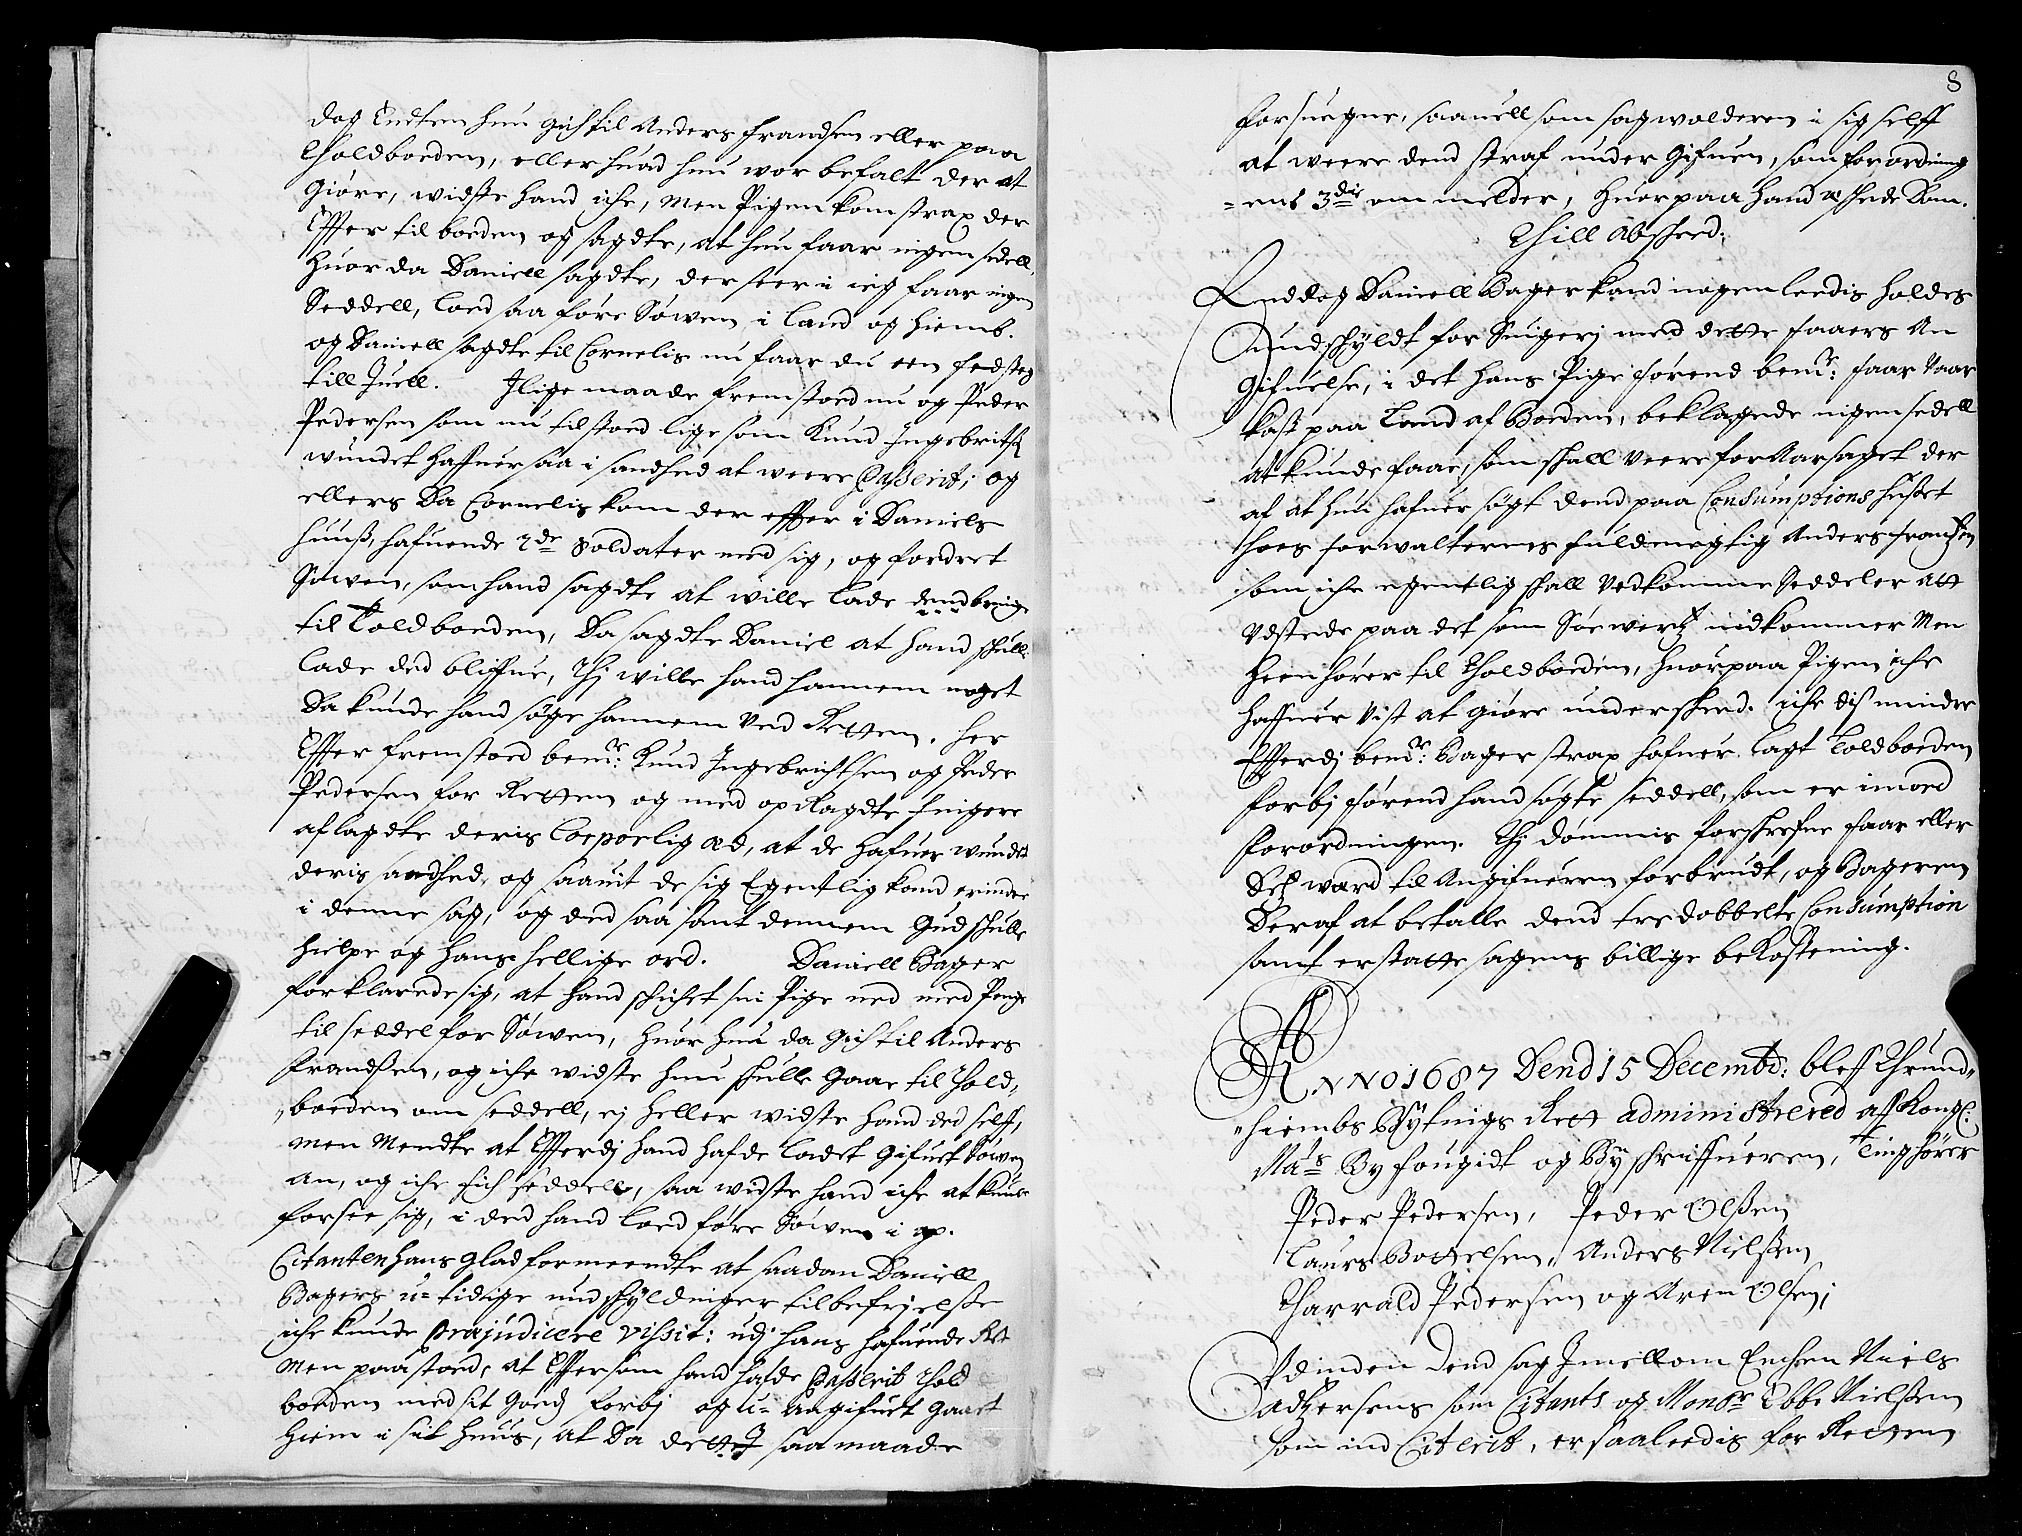 dog Endten hun gich til Anders Frandsen eller paa
Tholdboeden, eller huad hun wor befalt der at
giøre, widste hand iche, Men Pigen kom strax der
Effter til boeden og sagdte, at hun faar ingen sedell,
huor da Daniell sagdte, der seer i ieg faar ingen
Seddell, loed saa føre Søwen i land og hiemb.
og Daniell sagdte til Cornelis nu faar du een fedsteg
till Juell. Ilige maade fremstoed nu og Peder
Pedersen som nu tilstoed ligesom Knud Ingebritß
wundet haffuer saa i sandhed at weere Passerit; og
ellers Da Cornelis kom der effter i Daniels
huuß, hafuende 2de Soldater med sig, og fordret
Søwen, som hand sagdte at wille lade dend bringe
til Toldboeden, Da sagdte Daniel at hand skulle
lade ded bliffue, Thj wille hand hannem noget
Da kunde hand søge hannem ved Retten. her
Effter fremstoed bemte: Knud Ingebrichtsen og Peder
Pedersen for Retten og med opRagdte fingere
aflagdte deris Corporlig æd, at de hafuer wundet
deris sandhed, og saauit de sig Egentlig kand erindre
i denne sag, og ded saa sant dennem Gud skulle
hielpe og hans hellige ord. Daniell Bager
forklarede sig, at hand schichet sin Pige ned med Penge
til seddel for Søwen, huor hun da gich til Anders
Frandßen, og iche widste hun skulle gaae til Thold-
boeden om seddell, ej heller widste hand ded selff,
men Mendte at Efferdj hand hafde ladet gifuet Søwen
an, og iche fich seddell, saa widste hand iche at kunde
forsee sig, i ded hand loed føre Søwen i op.
Citanten Hans Glad formeendte at saadan Daniell
Bagers u-tidige undskyldninger til befrielße
iche kunde præjudicere vissit: udj hans hafuende Ret
Men paastoed, at Effersom hand hafde Passerit Thold
boeden med sit goedz forbj og u-angifuet gaaet
hiem i sit huus, at Da dette I saa maade
8
forsuegne, saauell som sagwolderen i sig selff
at weere dend straf under Gifuen, som forordning
=ens 3die om melder, huorpaa hand æskede Dom.
Thill Absked:
Enddog Daniell Bager kand nogenleedis holdes
undskyldt for Suigerj med dette faaers An
Gifuelse, i det hans Pige førend bemte: faar vaar
kast paa Land af Boeden, beklagede ingen sedell
at kunde faae, som skall veere forAarsaget der
af at hun hafuer søgt dend paa Consumptions huset
hoes forwalternes fuldmegtig Anders Frantzen
som iche egentlig skall vedkomme Seddeler att
vdstede paa det som Søewertz indkommer Men
heen hører til Tholdboeden, huorpaa Pigen iche
haffuer vist at giøre underskeed. iche dis minder
Efferdj bemte: Bager strax hafuer lagt Toldboeden
forbj førend hand søgte seddell, som er imoed
forordningen. Thj dømmis forskrefne faar eller
Dets ward til Angifueren forbrudt, og Bageren
Deraf at betalle dend tredobbelte Consumption
samt erstatte sagens billige bekostening.
ANNO 1687 Dend 15 Decembr: bleff Thrund-
-hiembs Bytings Rett administrered aff Kongl:
Mats By fougidt og Byskriffueren, Tinghører
Peder Pedersen, Peder Olßen
Laurs Bottelsen, Anders Nielßen
Tharrald Pedersen og Aren Olsen;
Vdinden Dend sag Imellom Enchen Niels
Adzersens som Citants og Monsr Ebbe Nielßen
som ind Citerit, er saaleedis for Retten